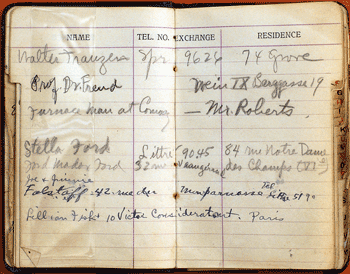 NAME TEL. NO. EXCHANGE RESIDENCE
Walter Spr 9626 74 Grove
Prof. Dr. Freud Wein IX Bergasse 19
Furnace man at Conway — Mr. Roberts
Stella Ford Littré 9045 84 rue Notre Dame
Ford Madox Ford 32 rue Vaugirard des Champs (VIe)
Joe & Jimmie
Falstaff 42 rue du Montparnasse Tel. Littre 5190
Lillian Fisk 10 Victor Considerant Paris